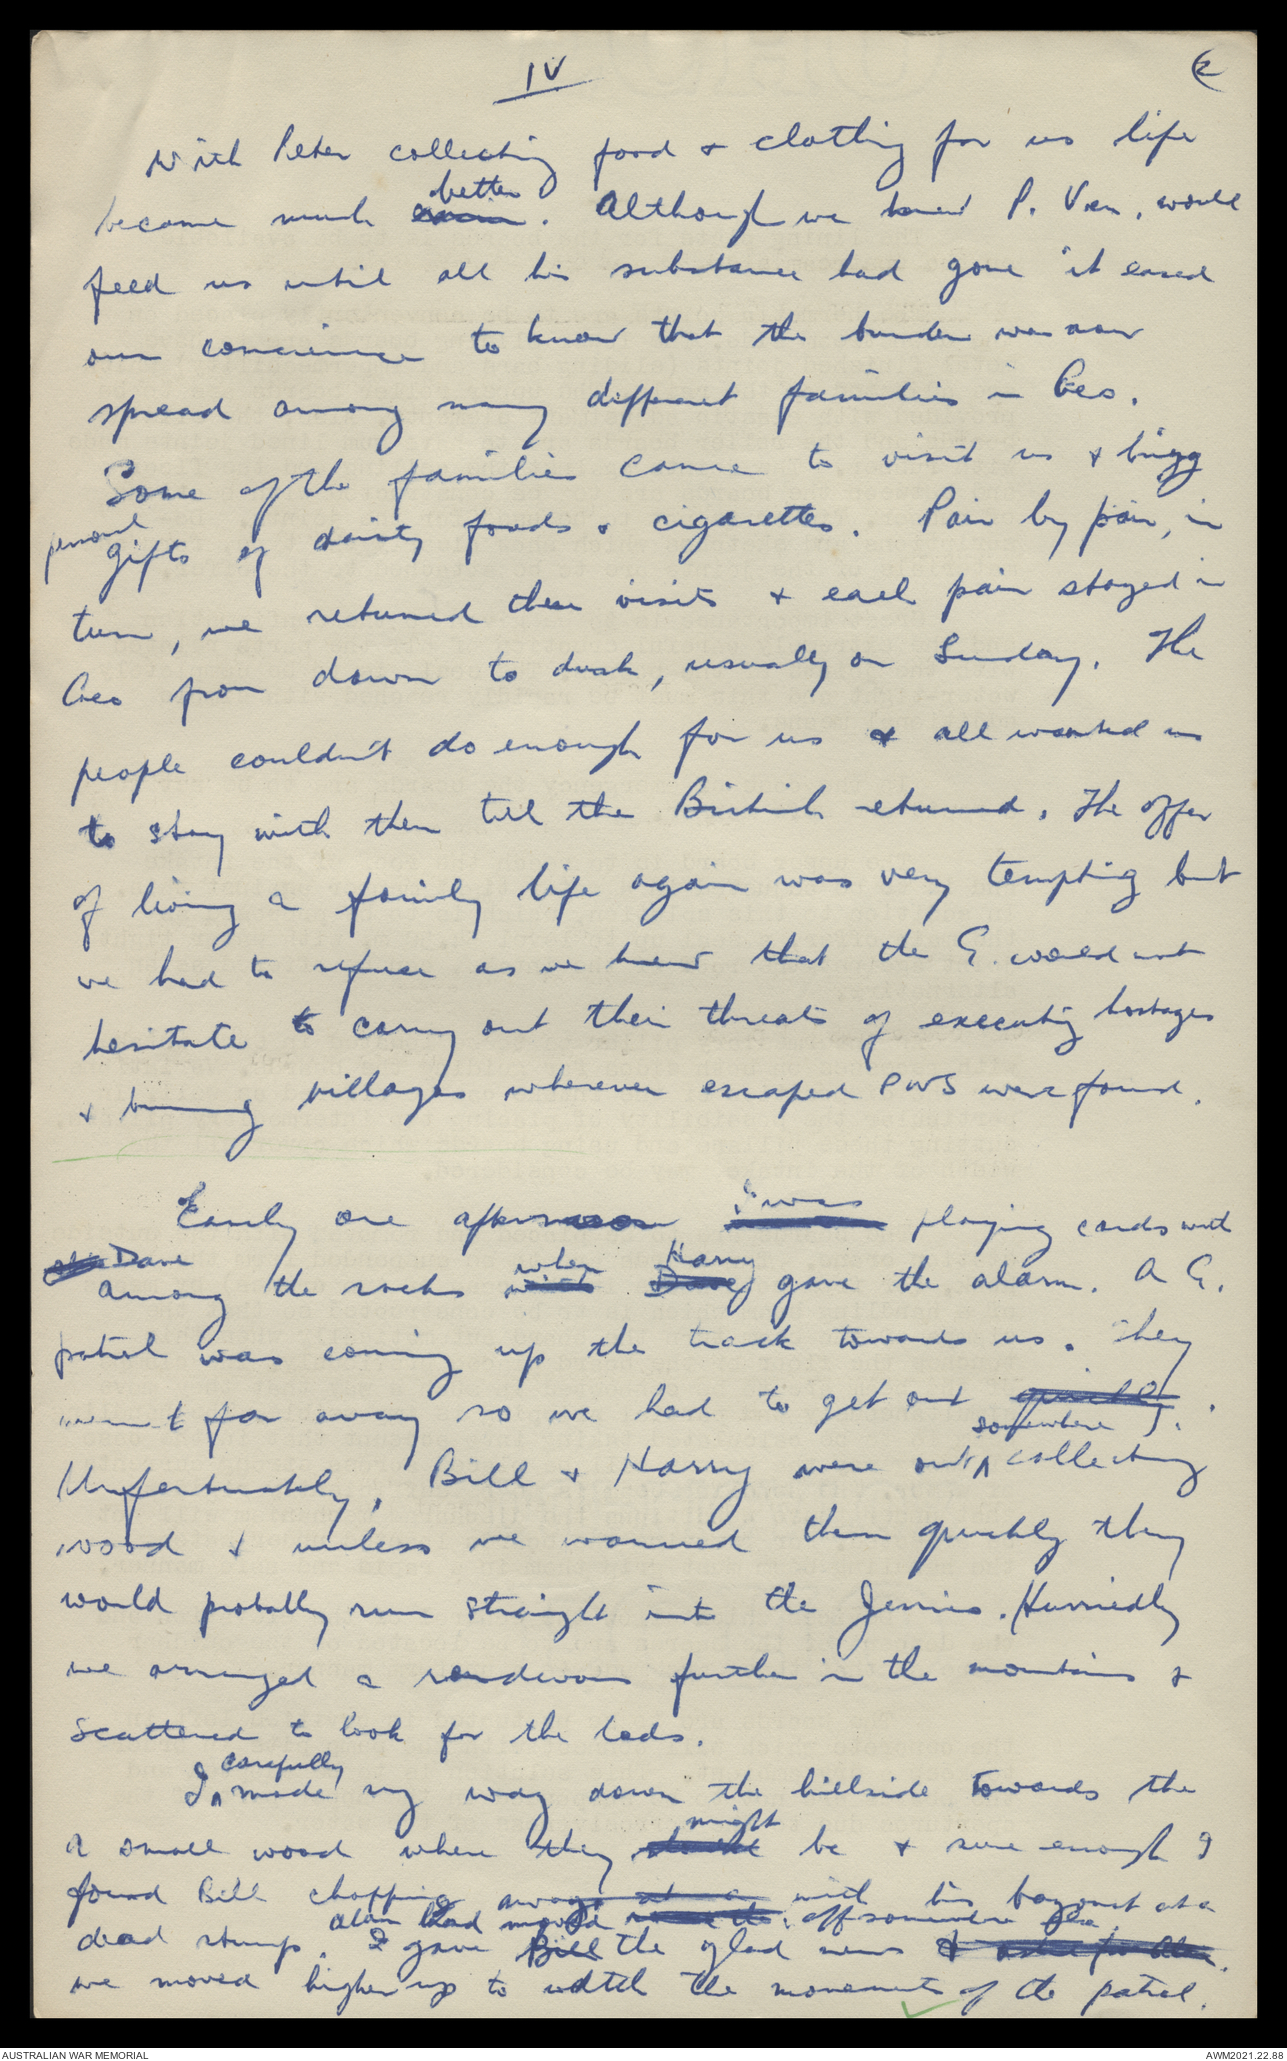 IV
2
With Peter collecting food & clothing for us life
became much better. Although we knew P. Ven. would
feed us until all his substance had gone it eased
our conscience to know that the burden was now
spread among many different families in Ceo.
Some of the families came to visit us & bring
personal gifts of dainty foods & cigarettes. Pair by pair, in
turn, we returned these visits & each pair stayed in
Ceo from dawn to dusk, usually on Sunday. The
people couldn't do enough for us & all wanted us
to stay with them till the British returned. The offer
of living a family life again was very tempting but
we had to refuse as we knew that the G. would not
hesitate to carry out their threats of executing hostages
& burning villages wherever escaped PWS were found.
Early one afternoon I was playing cards with
Dave among the rocks when Harry gave the alarm. A G.
patrol was coming up the track towards us. They
weren't far away so we had to get out quickly.
Unfortunately, Bill & Harry were out somewhere collecting
wood & unless we warned them quickly they
would probably run straight into the Jerries. Hurriedly
we arranged a rendevous further in the mountains &
scattered to look for the lads.
I carefully made my way down the hillside towards the
a small wood where they might be & sure enough I
found Bill chopping away with his bayonet at a
dead stump. Alan had moved off somewhere else.
I gave Bill the glad news
we moved higher up to watch the movements of the patrol.
AUSTRALIAN WAR MEMORIAL
AWM2021.22.88